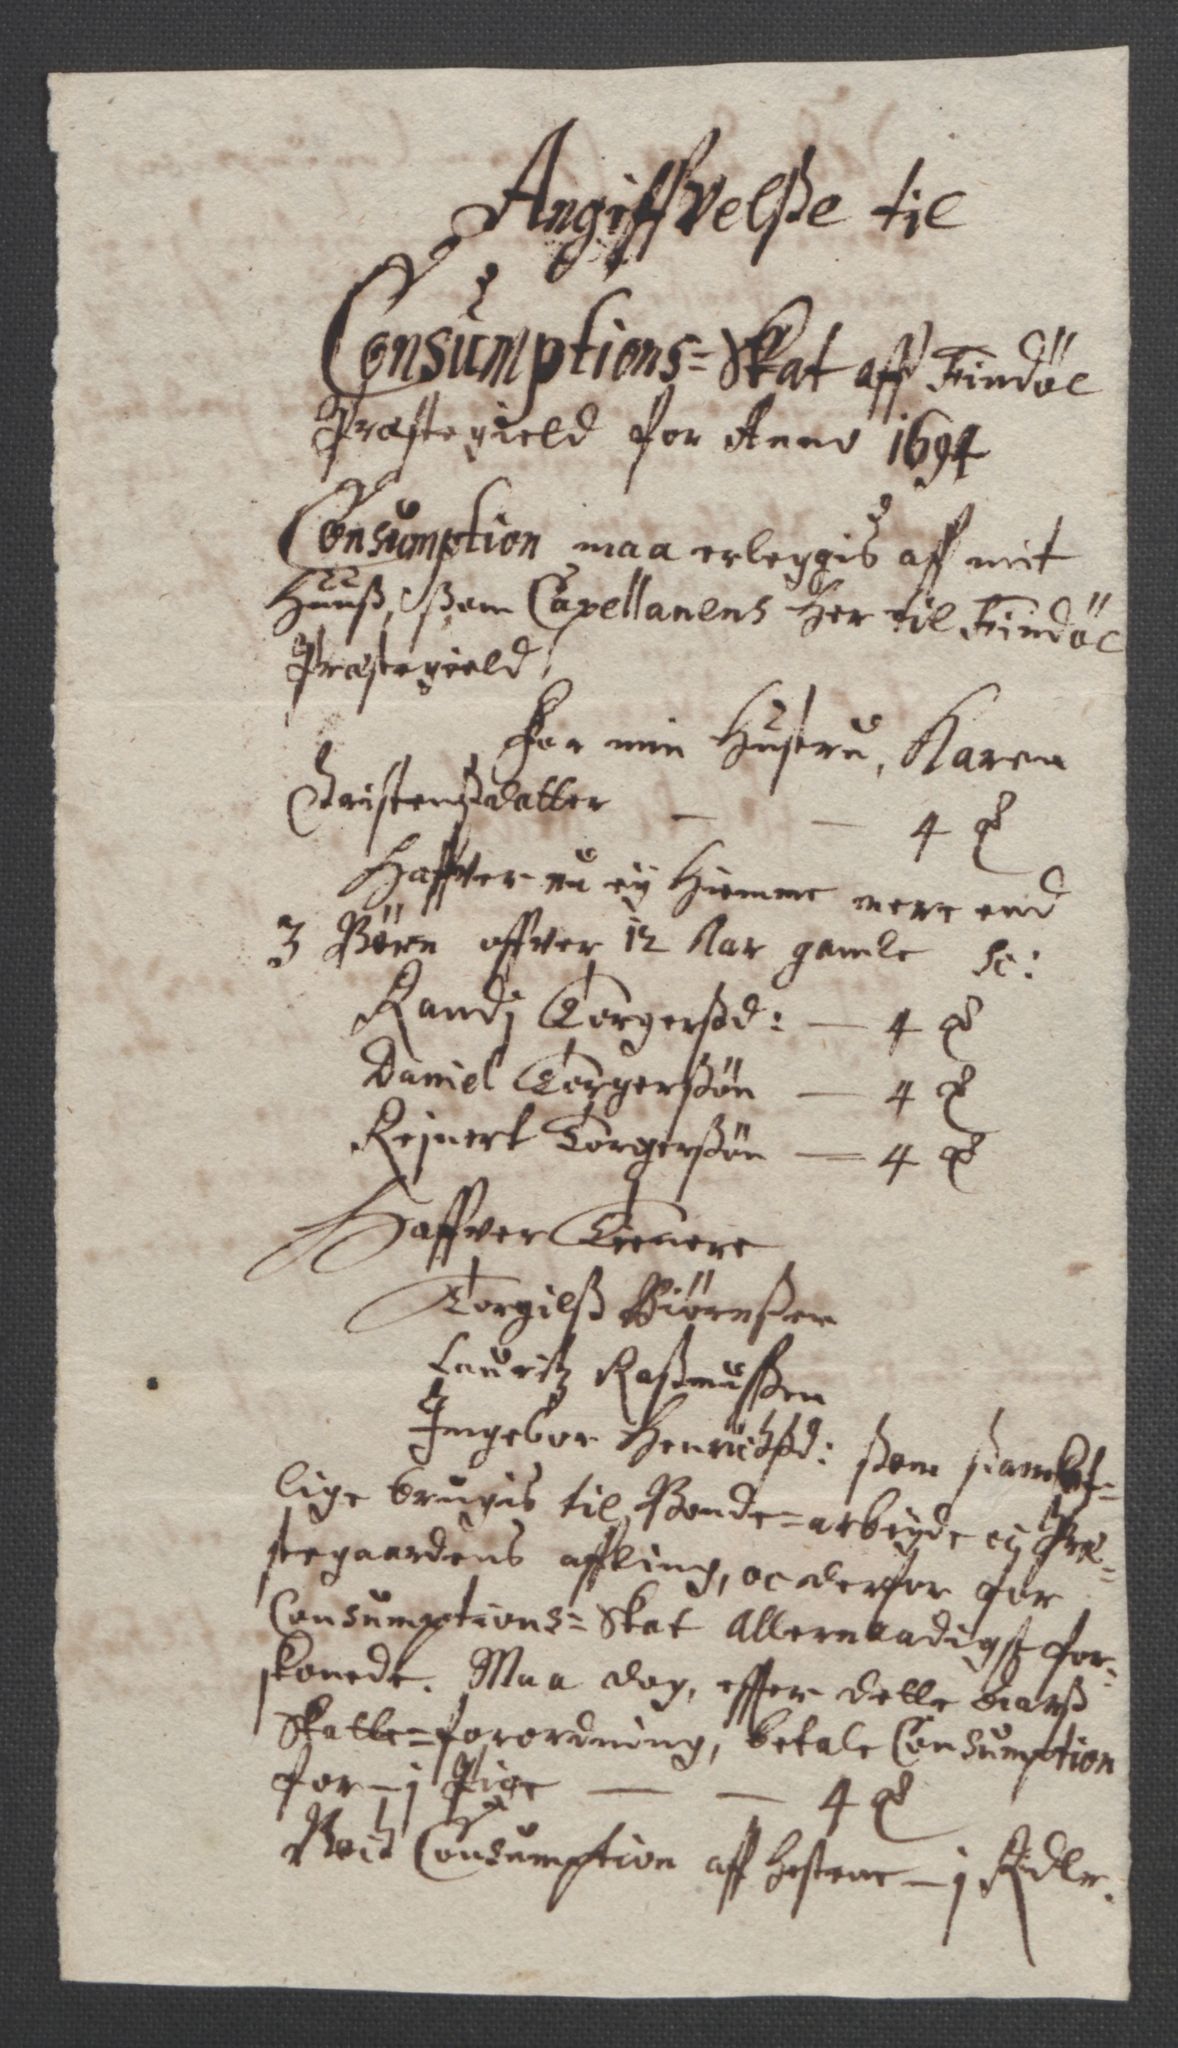 Angiffvelße til
Consumptions=Skat aff Findöe
Præstegield for Anno 1694
Consumption maa erleggis aff mit
Huuß, ßom Capellanens her til Findöe
Præstegield,
For min Hustru, Karen
Christensdatter — — 4 ꝶ
Haffver nu ey hiemme mere end
3 Börn offver 12 Aar gamle sc:
Randj Torgersd: — 4 ꝶ
Daniel Torgerßön — 4 ꝶ
Rejnert Torgerßön — 4 ꝶ
Haffver Tienere
Torgilß Biörnßen
Lauritz Raßmußen
Ingebor Henrichsd: ßom ßambt=
lige brugis til Bonde=arbeyde ej Præ=
stegaardens affling, oc derfor for
Consumptions=Skat Allernaadigst for=
skonede. Maa dog, effter dette aarß
Skatte=forordning, betale Consumption
for — j Pige — — 4 ꝶ
Consumption aff hestene — j Rdlr.